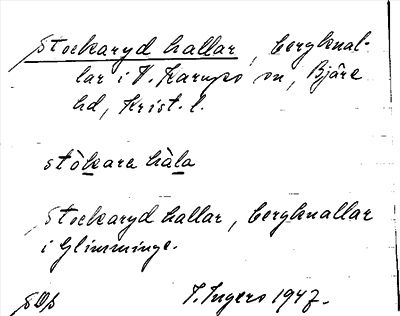 Stockaryd hallar, bergknal-
lar i V. Karups sn, Bjäre
hd, Krist. l.
stòkara hàla
Stockaryd hallar, bergknallar
i Glimminge.
I. Ingers 1947.